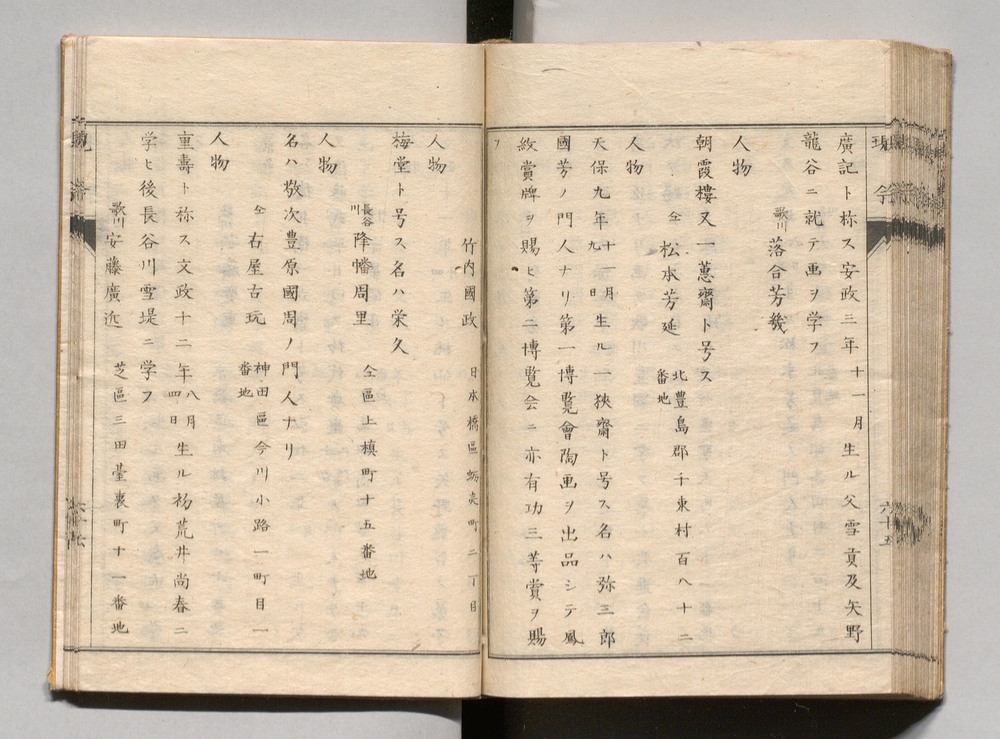 廣記ト称ス安政三年十一月生ル父雪貢及矢野
龍谷ニ就テ画ヲ学フ
歌川 落合芳幾
人物
朝霞樓又一蕙齋ト号ス
仝 松本芳延 北豊島郡千束村百八十二番地
人物
天保九年十一月九日生ル一狹齋ト号ス名ハ弥三郎
國芳ノ門人ナリ第一博覧會陶画ヲ出品シテ鳳
紋賞牌ヲ賜ヒ第二博覧会ニ亦有功三等賞ヲ賜
フ
竹内國政 日本橋區蛎売町二丁目
人物
梅堂ト号ス名ハ栄久
長谷川 降幡周里 仝區上槙町十五番地
人物
名ハ敬次豊原國周ノ門人ナリ
仝 右屋古玩 神田區今川小路一町目一番地
人物
重壽ト称ス文政十二年八月四日生ル初荒井尚春ニ
学ヒ後長谷川雪堤ニ学フ
歌川 安藤廣近 芝區三田臺裏町十一番地